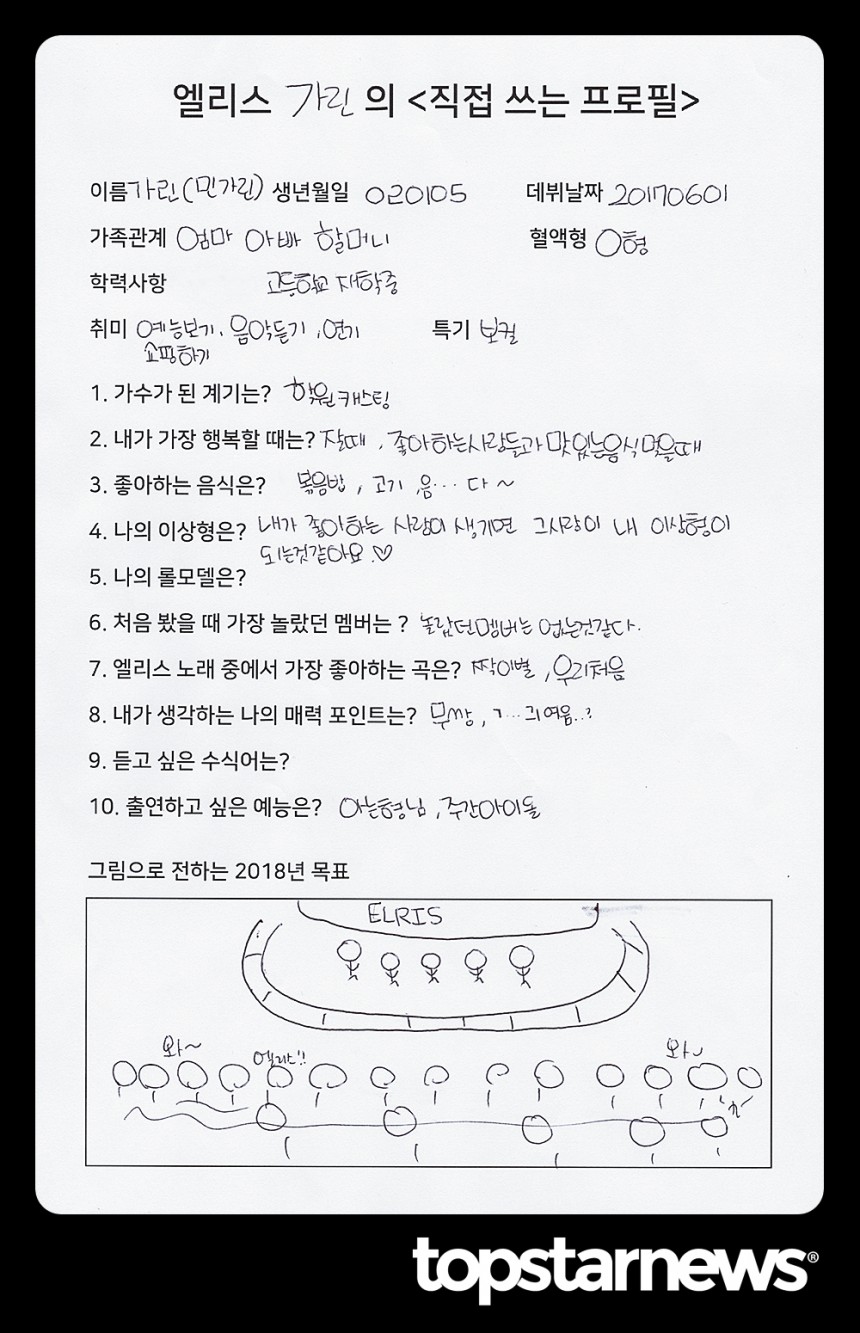 엘리스 가린 의 <직접 쓰는 프로필>
이름 가린(민가린) 생년월일 020105 데뷔날짜 20170601
가족관계 엄마 아빠 할머니 혈액형 O형
학력사항 고등학교 재학중
취미 예능보기, 음악듣기, 연기 특기 보컬
쇼핑하기
1. 가수가 된 계기는? 학원캐스팅
2. 내가 가장 행복할 때는? 잘때, 좋아하는사람들과 맛있는음식먹을때
3. 좋아하는 음식은? 볶음밥, 고기, 음... 다~
4. 나의 이상형은? 내가 좋아하는 사람이 생기면 그사람이 내 이상형이
되는것같아요.♡
5. 나의 롤모델은?
6. 처음 봤을 때 가장 놀랐던 멤버는 ? 놀랐던멤버는 없는것같다.
7. 엘리스 노래 중에서 가장 좋아하는 곡은? 짝이별, 우리처음
8. 내가 생각하는 나의 매력 포인트는? 무쌍, ㄱ...긔여움..?
9. 듣고 싶은 수식어는?
10. 출연하고 싶은 예능은? 아는형님, 주간아이돌
그림으로 전하는 2018년 목표
ELRIS
와~ 엘리스!! 와~
topstarnews®